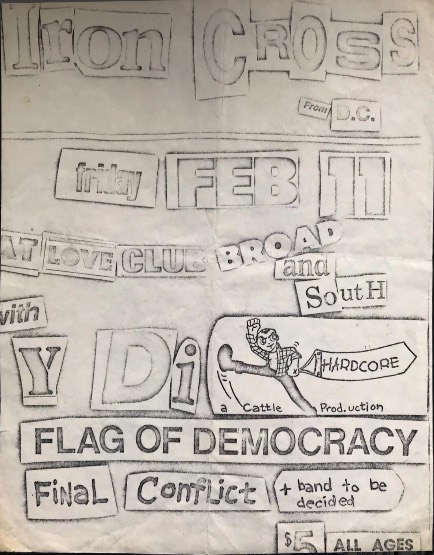 Iron Cross
From D.C.
friday FEB 11
AT LOVE CLUB BROAD
and
South
with
Y Di
HARDCORE
a Cattle Prod.uction
FLAG OF DEMOCRACY
FiNaL Conflict + band to be
decided
$5 ALL AGES